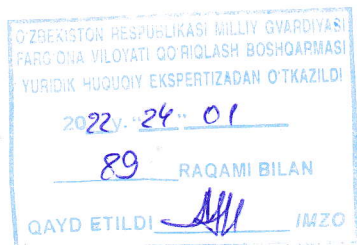 O'ZBEKISTON RESPUBLIKASI MILLIY GVARDIYASI
FARG'ONA VILOYATI QO'RIQLASH BOSHQARMASI
YURIDIK HUQUQIY EKSPERTIZADAN O'TKAZILDI
2022 y. "24" 01
89 RAQAMI BILAN
QAYD ETILDI IMZO